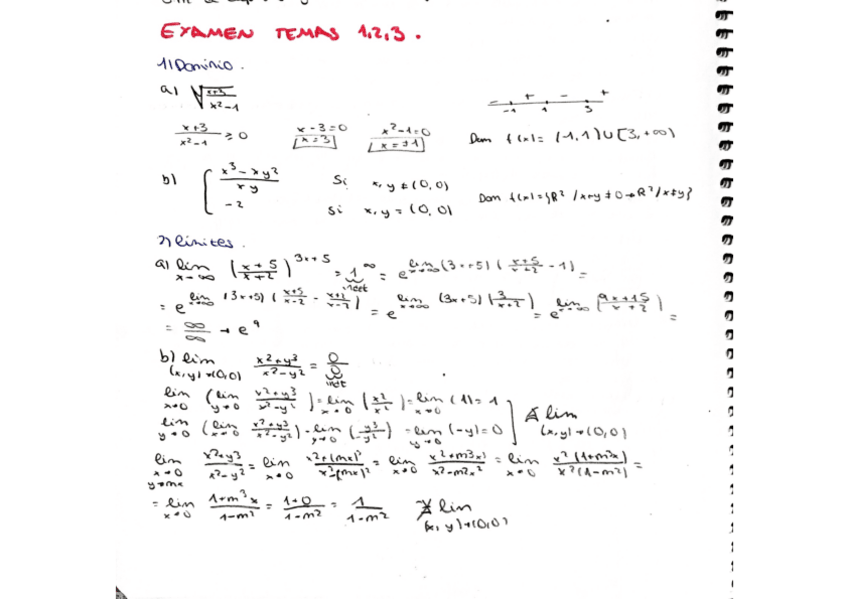 EXAMEN TEMAS 1,2,3.
1) Dominio.
a) √((x+3)/(x²-1))
(x+3)/(x²-1) ≥ 0   x-3=0   x=3   x²-1=0   x=±1   - + - +   -1 1 3   Dom f(x)= (-1,1)∪[3,+∞)
b) { (x³-xy²)/(xy)   Si x,y ≠ (0,0)
-2   si x,y = (0,0)
2) límites.
a) lim x→∞ ((x+5)/(x+2))^(3x+5) = 1^∞ indet = e^(lim x→∞ (3x+5) ((x+5)/(x+2) - 1)) =
= e^(lim x→∞ (3x+5) ((x+5)/(x-2) - (x+2)/(x-2))) = e^(lim x→∞ (3x+5) (3/(x+2))) = e^(lim x→∞ ((9x+15)/(x+2))) =
= ∞/∞ → e⁹
b) lim (x,y)→(0,0) (x²+y³)/(x²-y²) = 0/0 indt
lim x→0 (lim y→0 (x²+y³)/(x²-y²)) = lim x→0 (x²/x²) = lim x→0 (1) = 1
lim y→0 (lim x→0 (x²+y³)/(x²-y²)) = lim y→0 (y³/-y²) = lim y→0 (-y) = 0   ∄ lim (x,y)→(0,0)
lim x→0 y=mx (x²+y³)/(x²-y²) = lim x→0 (x²+(mx)³)/(x²-(mx)²) = lim x→0 (x²+m³x³)/(x²-m²x²) = lim x→0 (x²(1+m³x))/(x²(1-m²)) =
= lim x→0 (1+m³x)/(1-m²) = (1+0)/(1-m²) = 1/(1-m²)   ∄ lim (x,y)→(0,0)